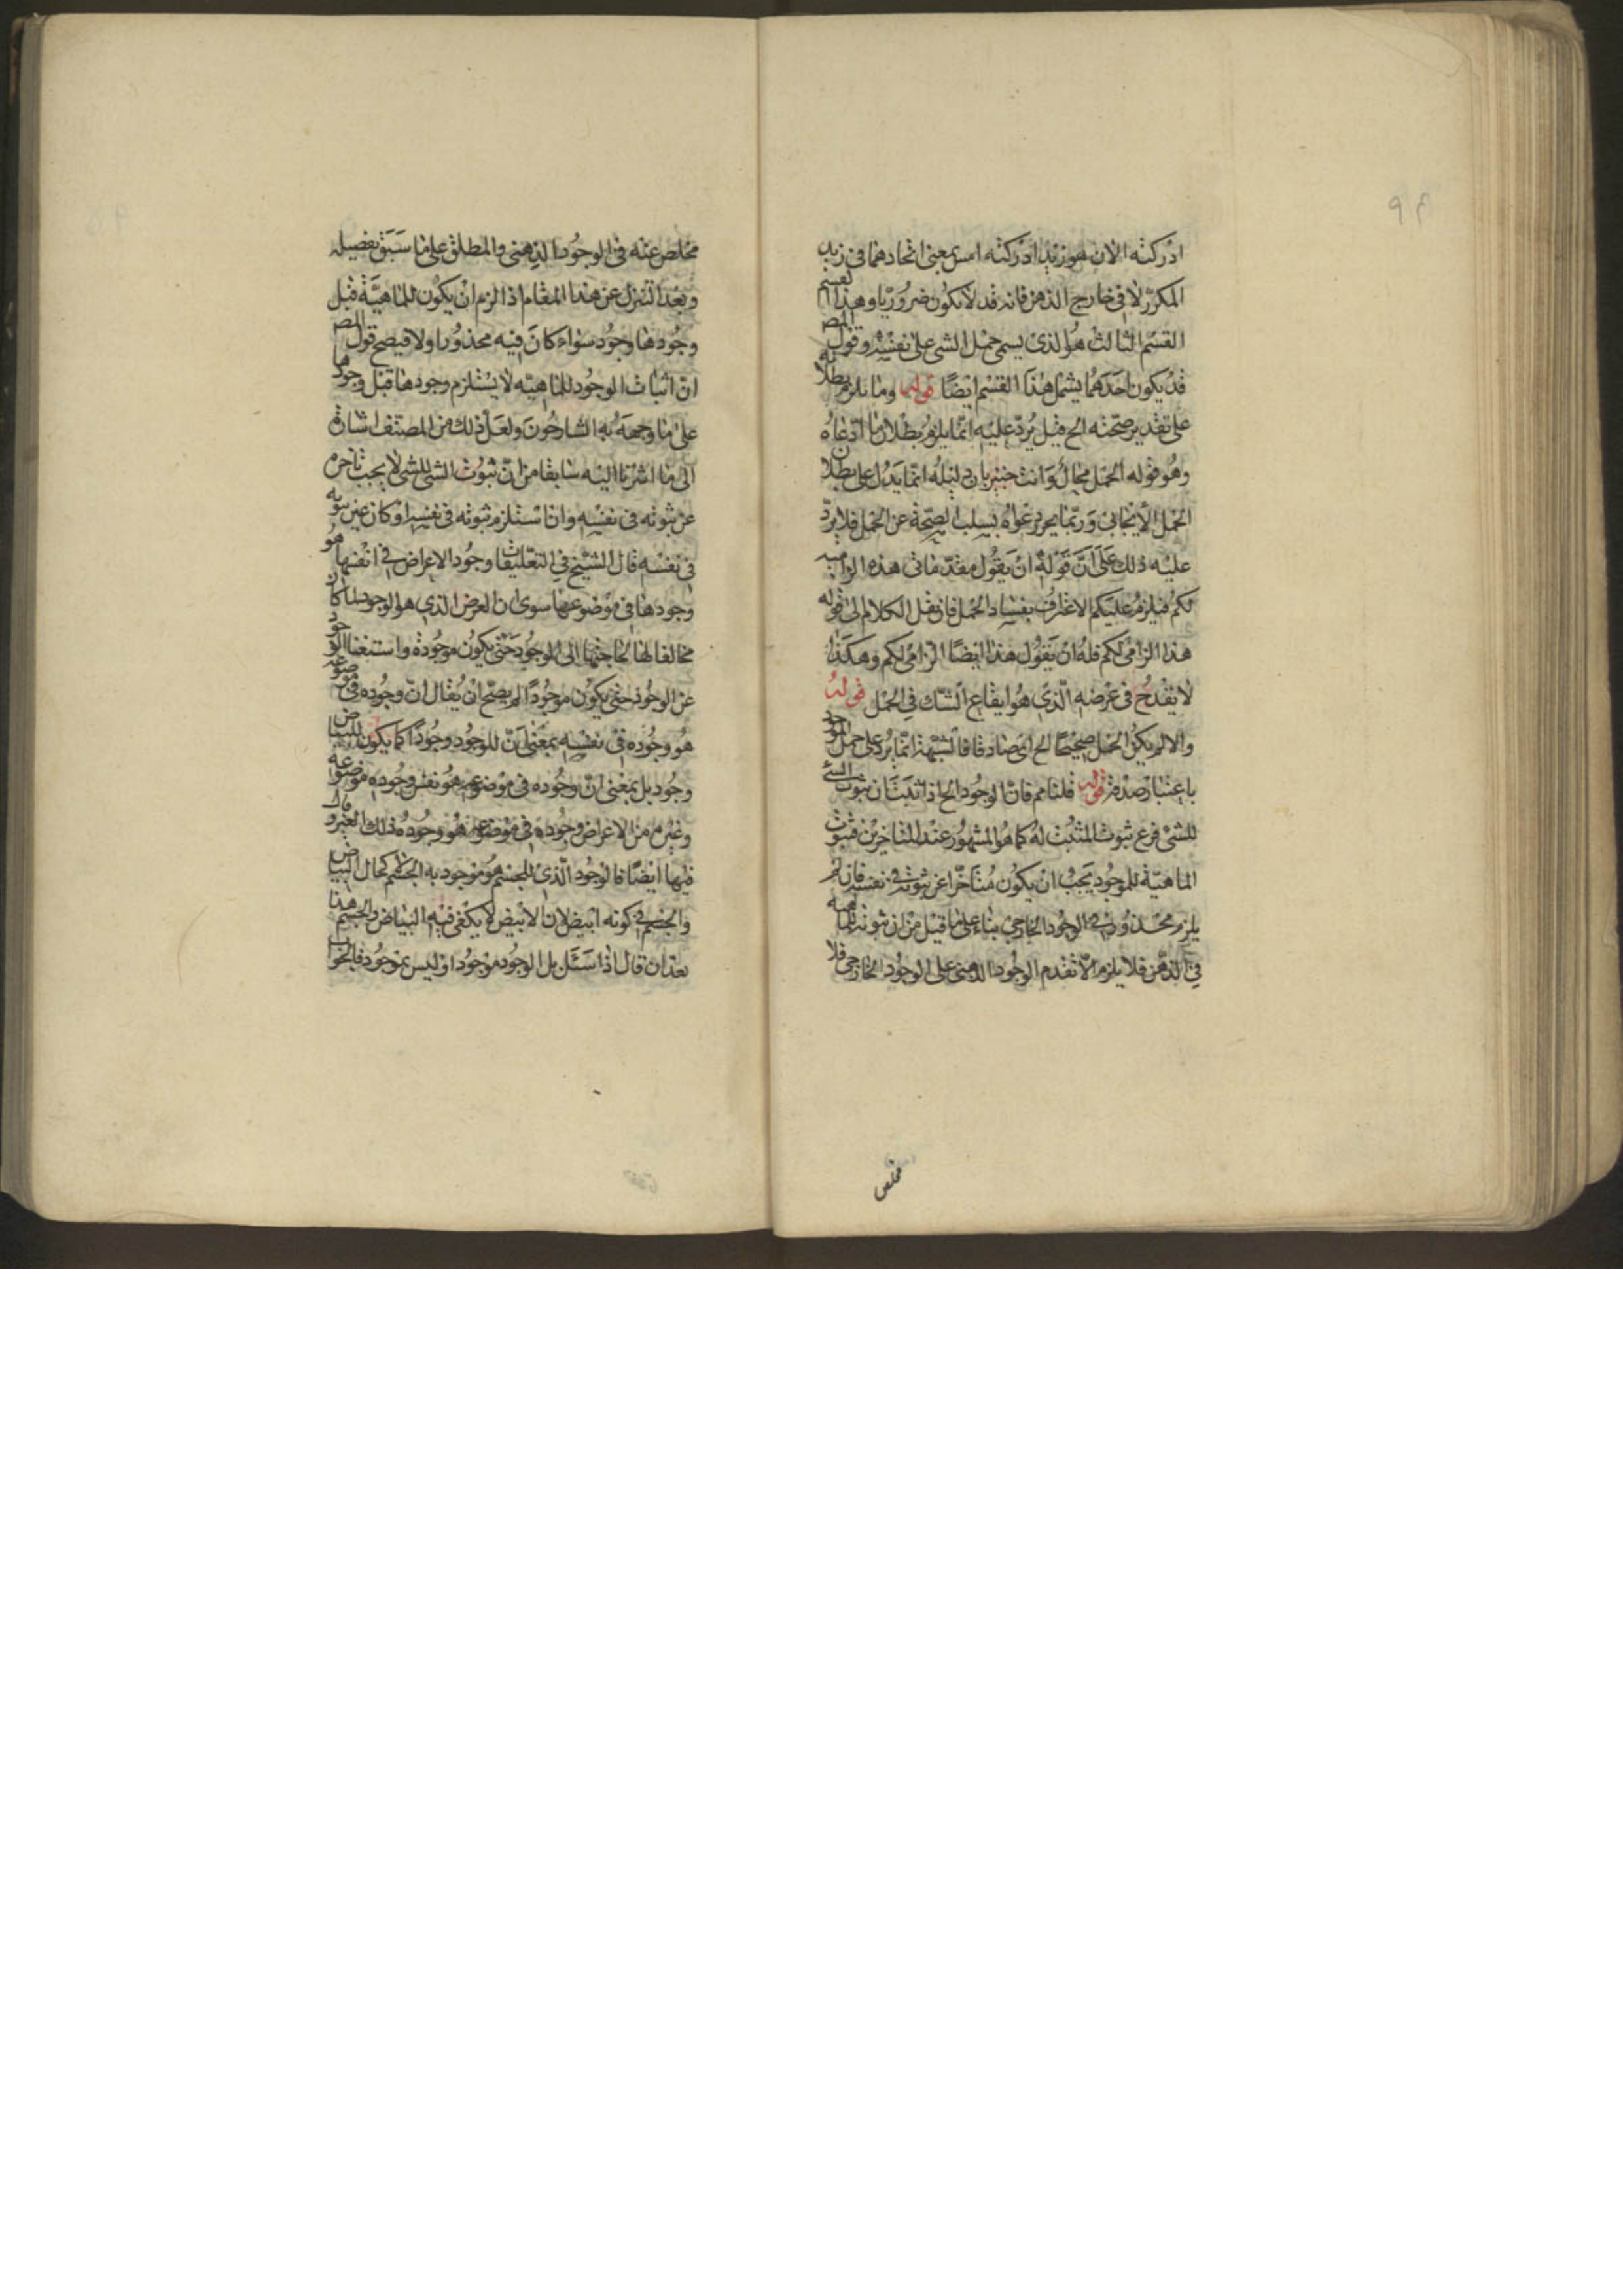 ادركته الان هو زيد ادركته امس بمعنى اتحادهما فى زيد
المكرر لا فى خارج الذهن فانه قد لا يكون ضروريا وهذا القسم
القسم الثالث هو الذى يسمى حمل الشى على نفسه وقول المص
قد يكون احدهما يشمل هذا القسم ايضا قوله وما يلزم بطلانه
على تقدير صحته الخ قيل يرد عليه انما يلزم بطلان ما ادعاه
وهو قوله الحمل محال وانت خبير بان دليله انما يدل على بطلان
الحمل الايجابى وربما يحرر دعواه بسلب الصحة عن الحمل فلا يرد
عليه ذلك على ان قوله ان يقول مقدماتى هذه الزامية
لكم فيلزم عليكم الاعتراف بفساد الحمل فان نقل الكلام الى قوله
هذا الزامى لكم فله ان يقول هذا ايضا الزامى لكم وهكذا
لا يقدح فى غرضه الذى هو ايقاع الشك فى الحمل قوله
والا لم يكن الحمل صحيحا الخ اى صادقا فالشبهة انما يرد على حمل الموجود
باعتبار صدقه قوله قلنا مم فان الوجود الخ اذا ثبت ان ثبوت الشى
للشى فرع ثبوت المثبت له كما هو المشهور عند المتاخرين فثبوت
الماهية للموجود يجب ان يكون متاخرا عن ثبوته فى نفسه فانه لم
يلزم محذور فى الوجود الخارجى بناء على ما قيل من ان ثبوته للماهية
فى الذهن فلا يلزم الا تقدم الوجود الذهنى على الوجود الخارجى فلا
مخلص
مخلص عنه فى الوجود الذهنى والمطلق على ما سبق تفصيله
وبعد التنزل عن هذا المقام اذا لزم ان يكون للماهية قبل
وجودها وجود سواء كان فيه محذورا ولا فيصح قول المص
ان اثبات الوجود للماهيه لا يستلزم وجودها قبل وجودها
على ما وجهه به الشارحون ولعل ذلك من المصنف اشارة
الى ما اشرنا اليه سابقا من ان ثبوت الشى للشى لا يجب تاخره
عن ثبوته فى نفسه وان استلزم ثبوته فى نفسه او كان عين ثبوته
فى نفسه قال الشيخ فى التعليقات وجود الاعراض فى انفسها هو
وجودها فى موضوعها سوى ان العرض الذى هو الوجود لما كان
مخالفا لها لحاجتها الى الوجود حتى يكون موجودة واستغناء الوجود
عن الوجود حتى يكون موجودا لم يصح ان يقال ان وجوده فى موضوعه
هو وجوده فى نفسه بمعنى ان للوجود وجودا كما يكون للبياض
وجود بل بمعنى ان وجوده فى موضوعه هو نفس وجود موضوعه
وغيره من الاعراض وجوده فى موضوعه هو وجود ذلك الغير وقال
فيها ايضا فالوجود الذى للجسم هو موجود به الجسم كحال البياض
والجسم فى كونه ابيض لان الابيض لا يكفى فيه البياض والجسم هذا
بعد ان قال اذا سئل بل الوجود موجود او ليس بموجود فالجواب